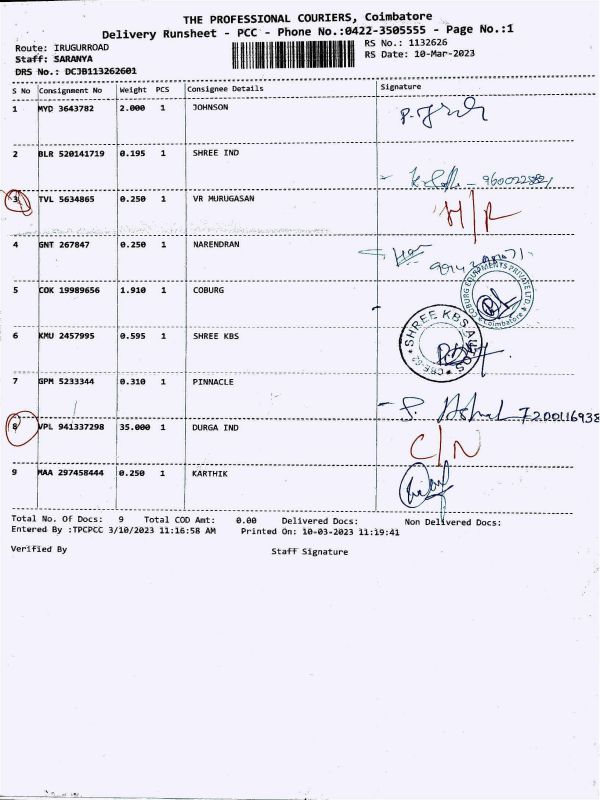 THE PROFESSIONAL COURIERS, Coimbatore
Delivery Runsheet - PCC - Phone No.:0422-3505555 - Page No.:1
Route: IRUGURROAD RS No.: 1132626
Staff: SARANYA RS Date: 10-Mar-2023
DRS No.: DCJB113262601
S No Consignment No Weight PCS Consignee Details Signature
1 MYD 3643782 2.000 1 JOHNSON
2 BLR 520141719 0.195 1 SHREE IND
3 TVL 5634865 0.250 1 VR MURUGASAN
4 GNT 267847 0.250 1 NARENDRAN
5 COK 19989656 1.910 1 COBURG
COBURG EQUIPMENTS PRIVATE LTD. Coimbatore
6 KMU 2457995 0.595 1 SHREE KBS
SHREE KBS AUTOS CBE-62
7 GPM 5233344 0.310 1 PINNACLE
7200116938
8 VPL 941337298 35.000 1 DURGA IND C/N
9 MAA 297458444 0.250 1 KARTHIK
Total No. Of Docs: 9 Total COD Amt: 0.00 Delivered Docs: Non Delivered Docs:
Entered By :TPCPCC 3/10/2023 11:16:58 AM Printed On: 10-03-2023 11:19:41
Verified By Staff Signature